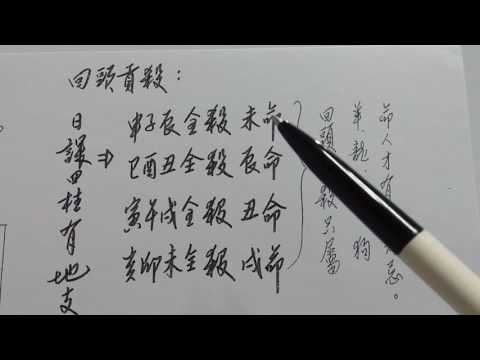 回頭貢殺：
日課四柱有地支⇒
申子辰全殺未命
巳酉丑全殺辰命
寅午戌全殺丑命
亥卯未全殺戌命
回頭殺只屬
羊龍狗
命人才有忌。